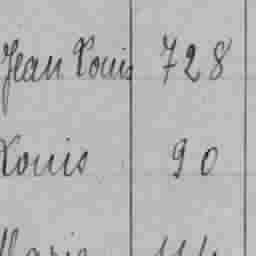 Jean Louis 728
Louis 90